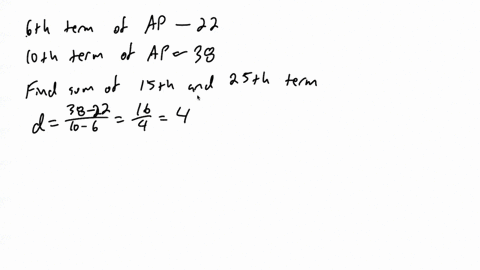 6th term of AP — 22
10th term of AP — 38
Find sum of 15th and 25th term
d = 38-22/10-6 = 16/4 = 4